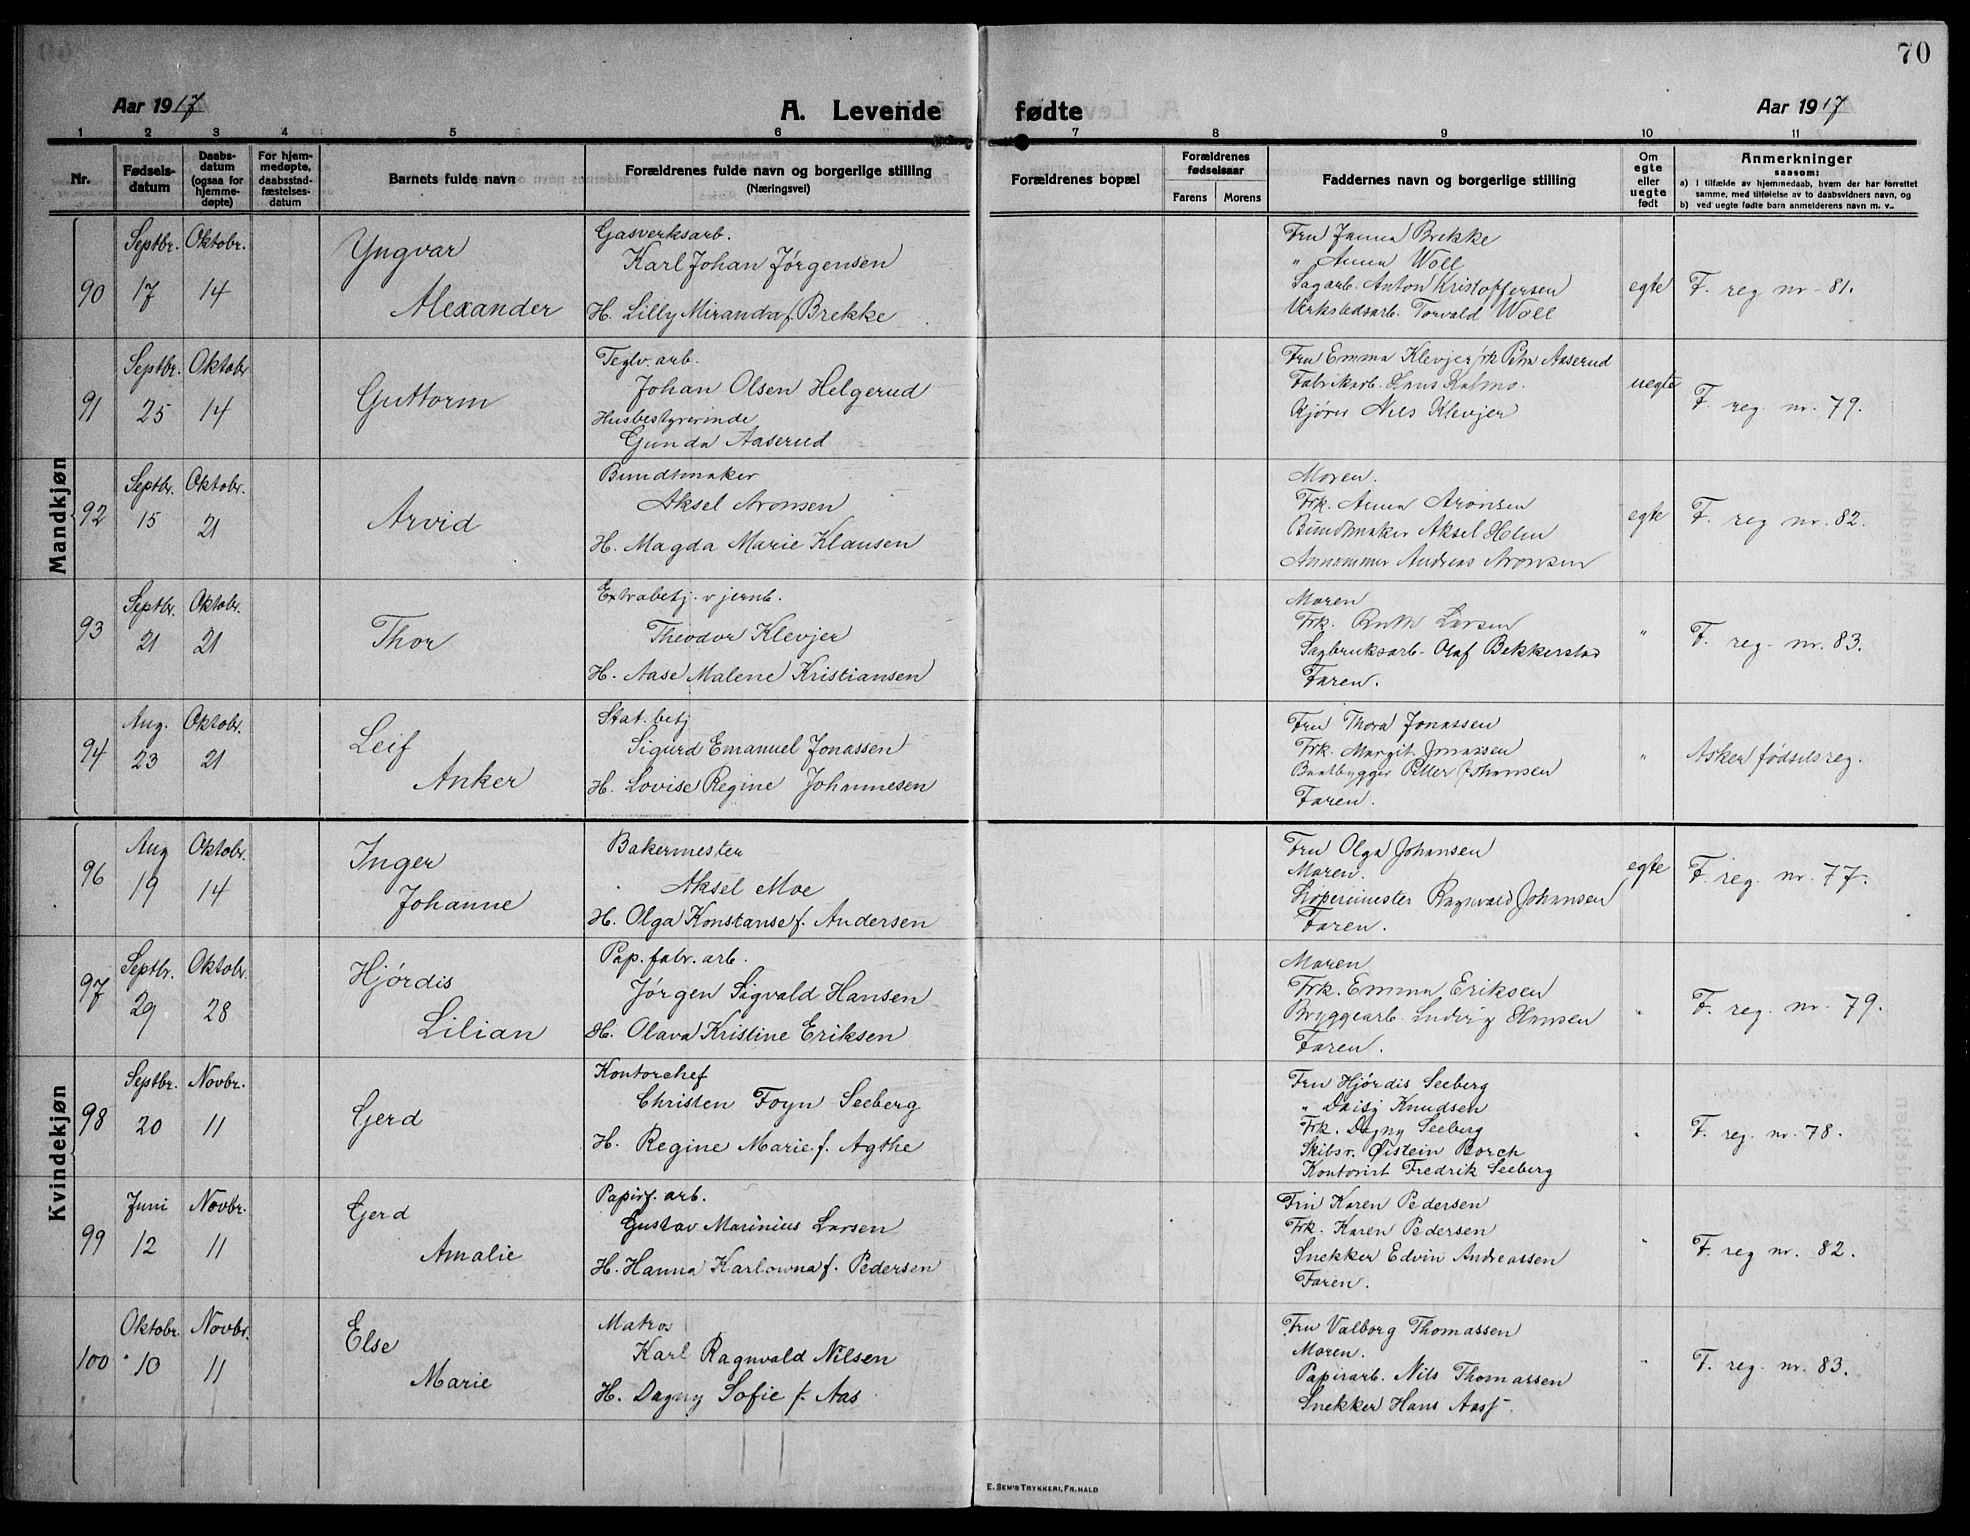 70
Aar 1917
A. Levende fødte
Aar 1917
1 2 3 4 5 6 7 8 9 10 11
Nr.
Fødsels-
datum
Daabs-
datum
(ogsaa for
hjemme-
døpte)
For hjem-
medøpte,
daabsstad-
fæstelses-
datum
Barnets fulde navn
Forældrenes fulde navn og borgerlige stilling
(Næringsvei)
Forældrenes bopæl
Forældrenes
fødselsaar
Farens Morens
Faddernes navn og borgerlige stilling
Om
egte
eller
uegte
født
Anmerkninger
saasom:
a) I tilfælde av hjemmedaab, hvem der har forrettet
samme, med tilføielse av to daabsvidners navn, og
b) ved uegte fødte barn anmelderens navn m. v..
Mandkjøn
90
Septbr. 17
Oktobr. 14
Yngvar
Alexander
Gasverksarb.
Karl Johan Jørgensen
H. Lilly Miranda f. Brekke
Fru Janna Brekke
" Anna Woll
Sagarb. Anton Kristoffersen
Verkstedsarb. Torvald Woll
egte
F. reg nr 81.
91
Septbr. 25
Oktobr 14
Guttorm
Teglv. arb.
Johan Olsen Helgerud
Husbestyrerinde
Gunda Aaserud
Fru Emma Klevjer frk Petra Aaserud
Fabrikarb. Hans Kalmo.
Kjører Nils Klevjer
uegte
F. reg. nr. 79.
92
Septbr. 15
Oktobr. 21
Arvid
Bundtmaker
Aksel Aronsen
H. Magda Marie Klausen
Moren.
Frk. Anna Aronsen
Bundtmaker Aksel Holm
Andreas Aronsen
egte
F. reg nr. 82.
93
Septbr. 21
Oktobr. 21
Thor
Extrabetj. v jernb.
Theodor Klevjer
H. Aase Malene Kristiansen
Moren
Frk. Ruth Larsen
Sagbruksarb. Olaf Bekkerstad
Faren.
"
F. reg. nr. 83.
94
Aug. 23
Oktobr. 21
Leif
Anker
Stat. betj
Sigurd Emanuel Jonassen
H. Lovise Regine Johannesen
Fru Thora Jonassen
Frk. Margit Jonassen
Baatbygger Petter Johansen
Faren.
"
Asker fødselsreg.
Kvindekjøn
96
Aug 19
Oktobr. 14
Inger
Johanne
Bakermester
Aksel Moe
H. Olga Konstanse f. Andersen
Fru Olga Johansen
Moren.
Stopermester Ragnvald Johansen
Faren.
egte
F. reg. nr. 77.
97
Septbr. 29
Oktobr. 28
Hjørdis
Lilian
Pap. fabr. arb.
Jørgen Sigvald Hansen
H. Olava Kristine Eriksen
Moren
Frk. Emma Eriksen
Bryggearb. Ludvig Hansen
Faren.
"
F. reg. nr. 79.
98
Septbr. 20
Novbr. 11
Gerd
Kontorchef
Christen Foyn Seeberg
H. Regine Marie f. Agthe
Fru Hjørdis Seeberg
" Daisy Knudsen
Frk. Dagny Seeberg
Skibsr. Øistein Borch
Kontorist Fredrik Seeberg
"
F. reg. nr. 78.
99
Juni 12
Novbr. 11
Gerd
Amalie
Papirf. arb.
Gustav Marinius Larsen
H. Hanna Karlowna f. Pedersen
Fru Karen Pedersen
Frk. Karen Pedersen
Snekker Edvin Andreassen
Faren.
"
F. reg nr. 82.
100
Oktobr. 10
Novbr. 11
Else
Marie
Matros
Karl Ragnvald Nilsen
H. Dagny Sofie f. Aas
Fru Valborg Thomassen
Moren.
Papirarb. Nils Thomassen
Snekker Hans Aas
"
F. reg. nr. 83.
E. SEM'S TRYKKERI, FR.HALD